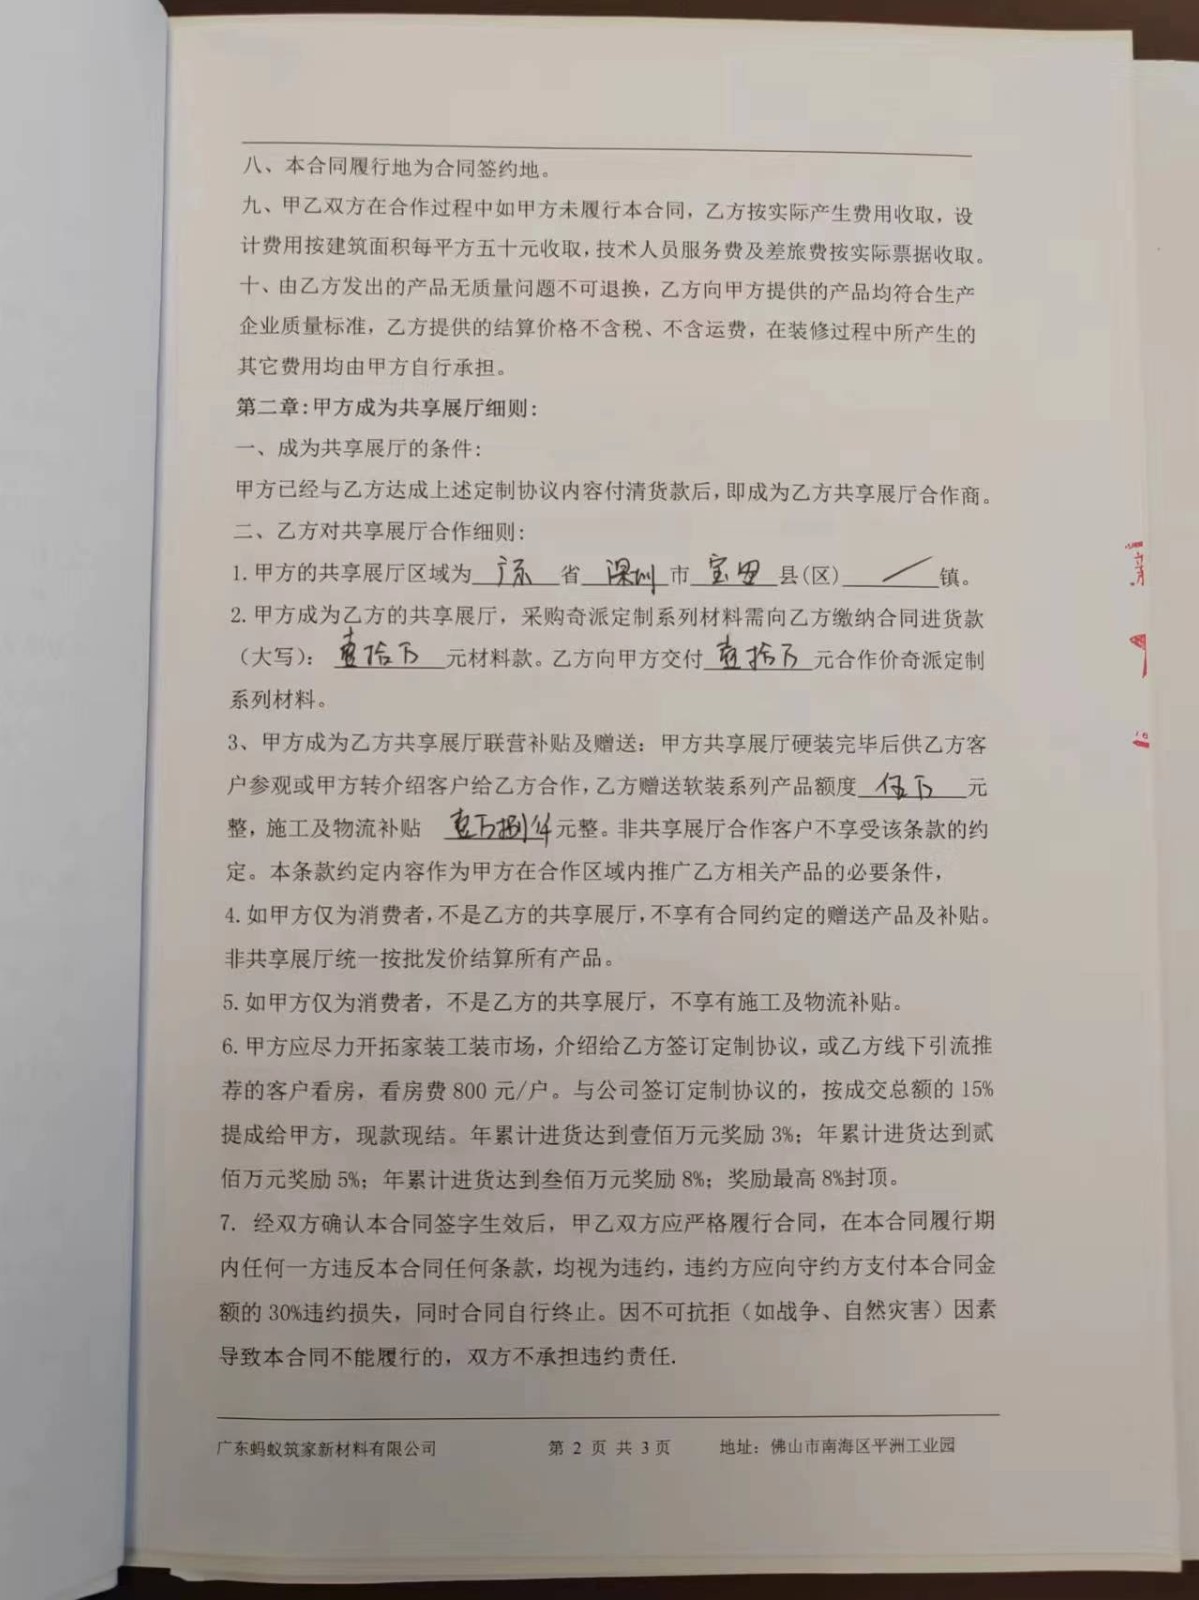 八、本合同履行地为合同签约地。
九、甲乙双方在合作过程中如甲方未履行本合同，乙方按实际产生费用收取，设
计费用按建筑面积每平方五十元收取，技术人员服务费及差旅费按实际票据收取。
十、由乙方发出的产品无质量问题不可退换，乙方向甲方提供的产品均符合生产
企业质量标准，乙方提供的结算价格不含税、不含运费，在装修过程中所产生的
其它费用均由甲方自行承担。
第二章:甲方成为共享展厅细则:
一、成为共享展厅的条件:
甲方已经与乙方达成上述定制协议内容付清货款后，即成为乙方共享展厅合作商。
二、乙方对共享展厅合作细则:
1.甲方的共享展厅区域为 广东 省 深圳 市 宝田 县(区) / 镇。
2.甲方成为乙方的共享展厅，采购奇派定制系列材料需向乙方缴纳合同进货款
（大写）： 壹拾万 元材料款。乙方向甲方交付 壹拾万 元合作价奇派定制
系列材料。
3、甲方成为乙方共享展厅联营补贴及赠送；甲方共享展厅硬装完毕后供乙方客
户参观或甲方转介绍客户给乙方合作，乙方赠送软装系列产品额度 伍万 元
整，施工及物流补贴 壹万捌仟元整。非共享展厅合作客户不享受该条款的约
定。本条款约定内容作为甲方在合作区域内推广乙方相关产品的必要条件，
4.如甲方仅为消费者，不是乙方的共享展厅，不享有合同约定的赠送产品及补贴。
非共享展厅统一按批发价结算所有产品。
5.如甲方仅为消费者，不是乙方的共享展厅，不享有施工及物流补贴。
6.甲方应尽力开拓家装工装市场，介绍给乙方签订定制协议，或乙方线下引流推
荐的客户看房，看房费800元/户。与公司签订定制协议的，按成交总额的15%
提成给甲方，现款现结。年累计进货达到壹佰万元奖励3%；年累计进货达到贰
佰万元奖励5%；年累计进货达到叁佰万元奖励8%；奖励最高8%封顶。
7. 经双方确认本合同签字生效后，甲乙双方应严格履行合同，在本合同履行期
内任何一方违反本合同任何条款，均视为违约，违约方应向守约方支付本合同金
额的30%违约损失，同时合同自行终止。因不可抗拒（如战争、自然灾害）因素
导致本合同不能履行的，双方不承担违约责任.
广东蚂蚁筑家新材料有限公司 第 2 页 共 3 页 地址：佛山市南海区平洲工业园